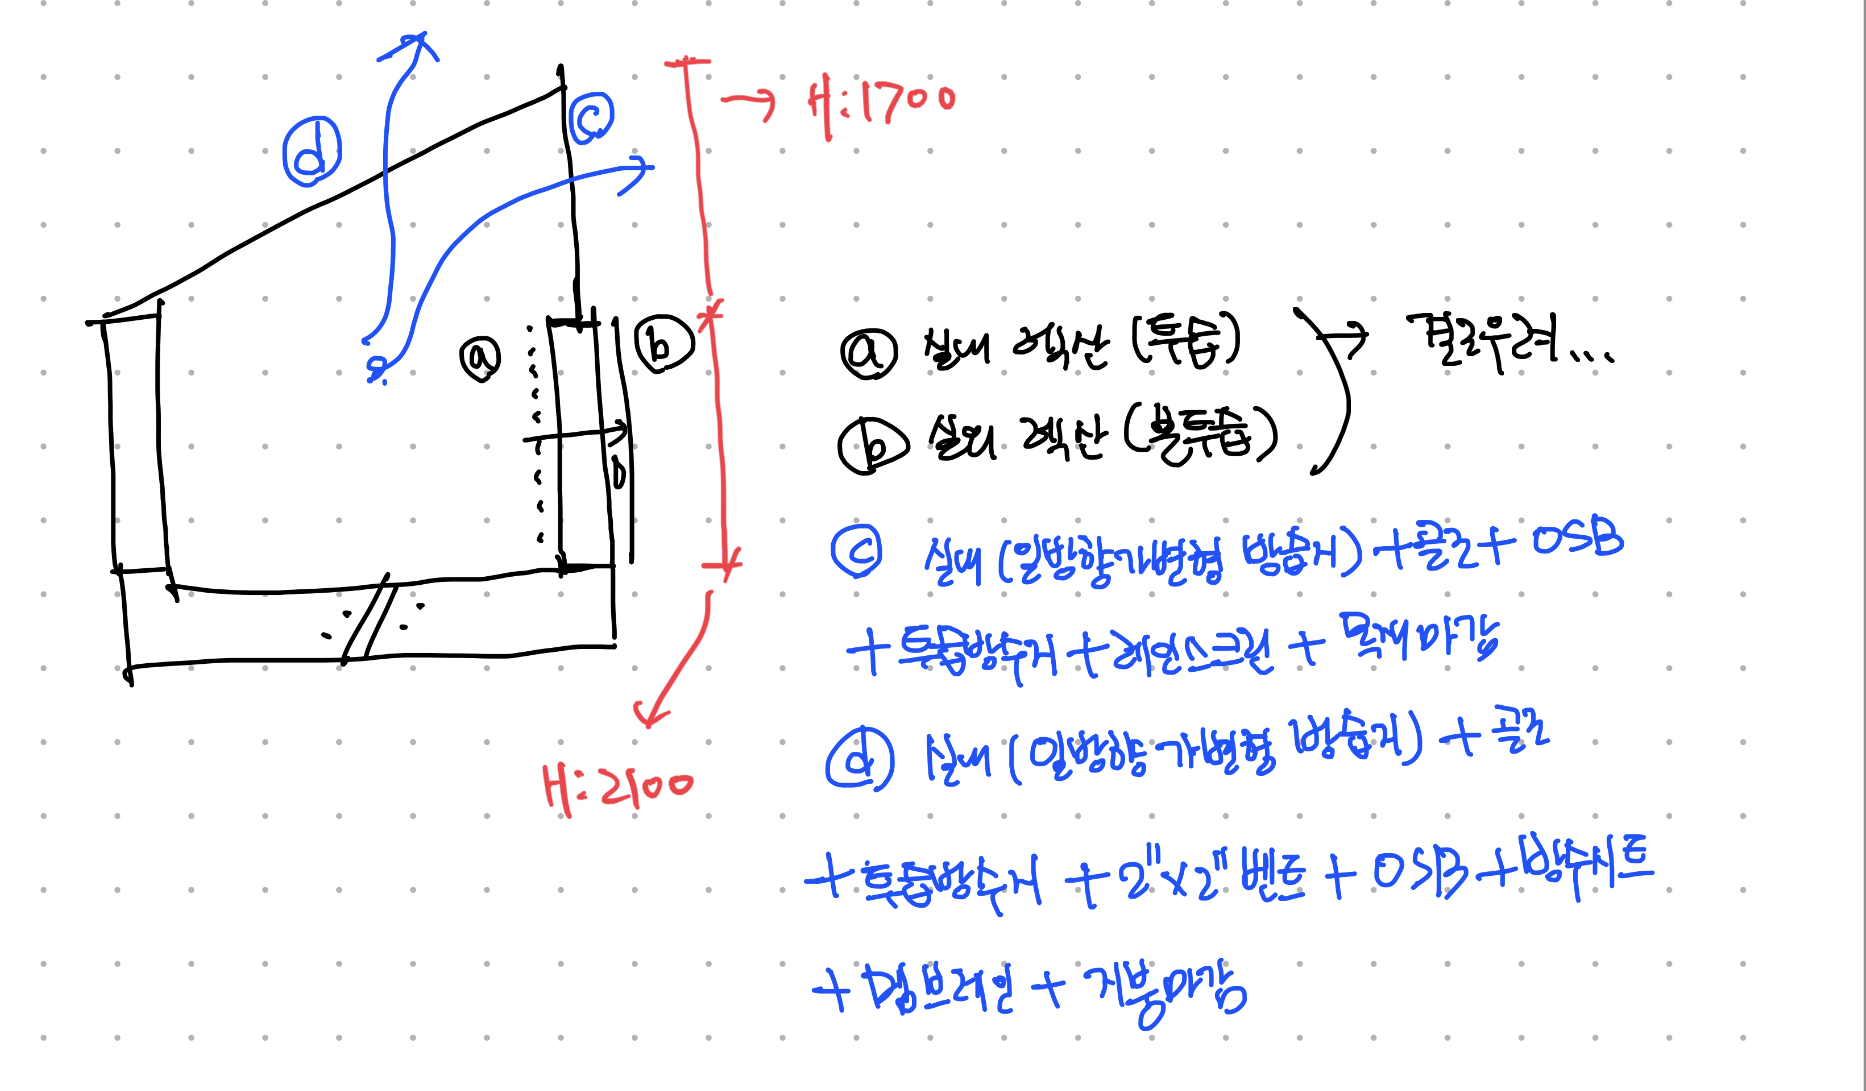 ⓓ
ⓒ
→ H:1700
ⓐ
ⓑ
ⓐ 실내 렉산 (투습)
→ 결로우려...
ⓑ 실외 렉산 (불투습)
ⓒ 실내 (일방향가변형 방습지) + 골조 + OSB
+ 투습방수지 + 레인스크린 + 목재마감
ⓓ 실내 (일방향 가변형 방습지) + 골조
+ 투습방수지 + 2"x2" 벤트 + OSB + 방수시트
+ 멤브레인 + 지붕마감
H:2100